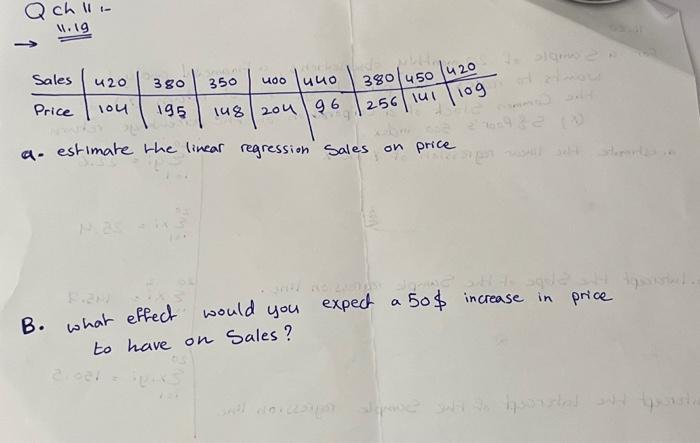 Q ch 11 :-
11.19
→
Sales | 420 | 380 | 350 | 400 | 440 | 380 | 450 | 420
Price | 104 | 195 | 148 | 204 | 96 | 256 | 141 | 109
a- estimate the linear regression Sales on price
B. what effect would you expect a 50$ increase in price
to have on Sales?